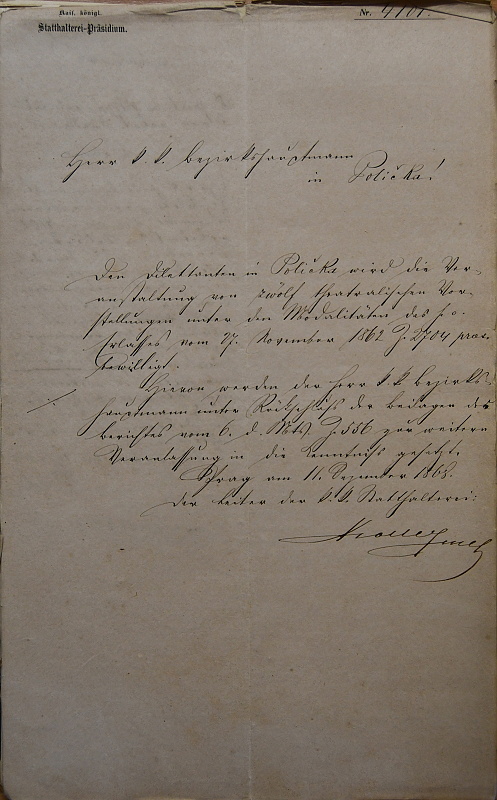 Kais. königl.
Statthalterei-Präsidium.
Nr.
Herr k. k. Bezirkshauptmann
in Polička!
Den Dilettanten in Polička wird die Ver-
anstaltung von zwölf theatralischen Vor-
stellungen unter den Modalitäten des h. o.
Erlasses vom 27. November 1862 Z. 2704 praes
bewilligt.
Hievon werden der Herr k. k. Bezirks-
hauptmann unter Rückschluß der Beilagen des
Berichtes vom 6. d. Mts. Z. 556 zur weitern
Veranlassung in die Kenntniß gesetzt.
Prag am 11. Dezember 1868.
Der Leiter der k. k. Statthalterei: